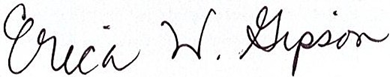 Erica W. Gipson